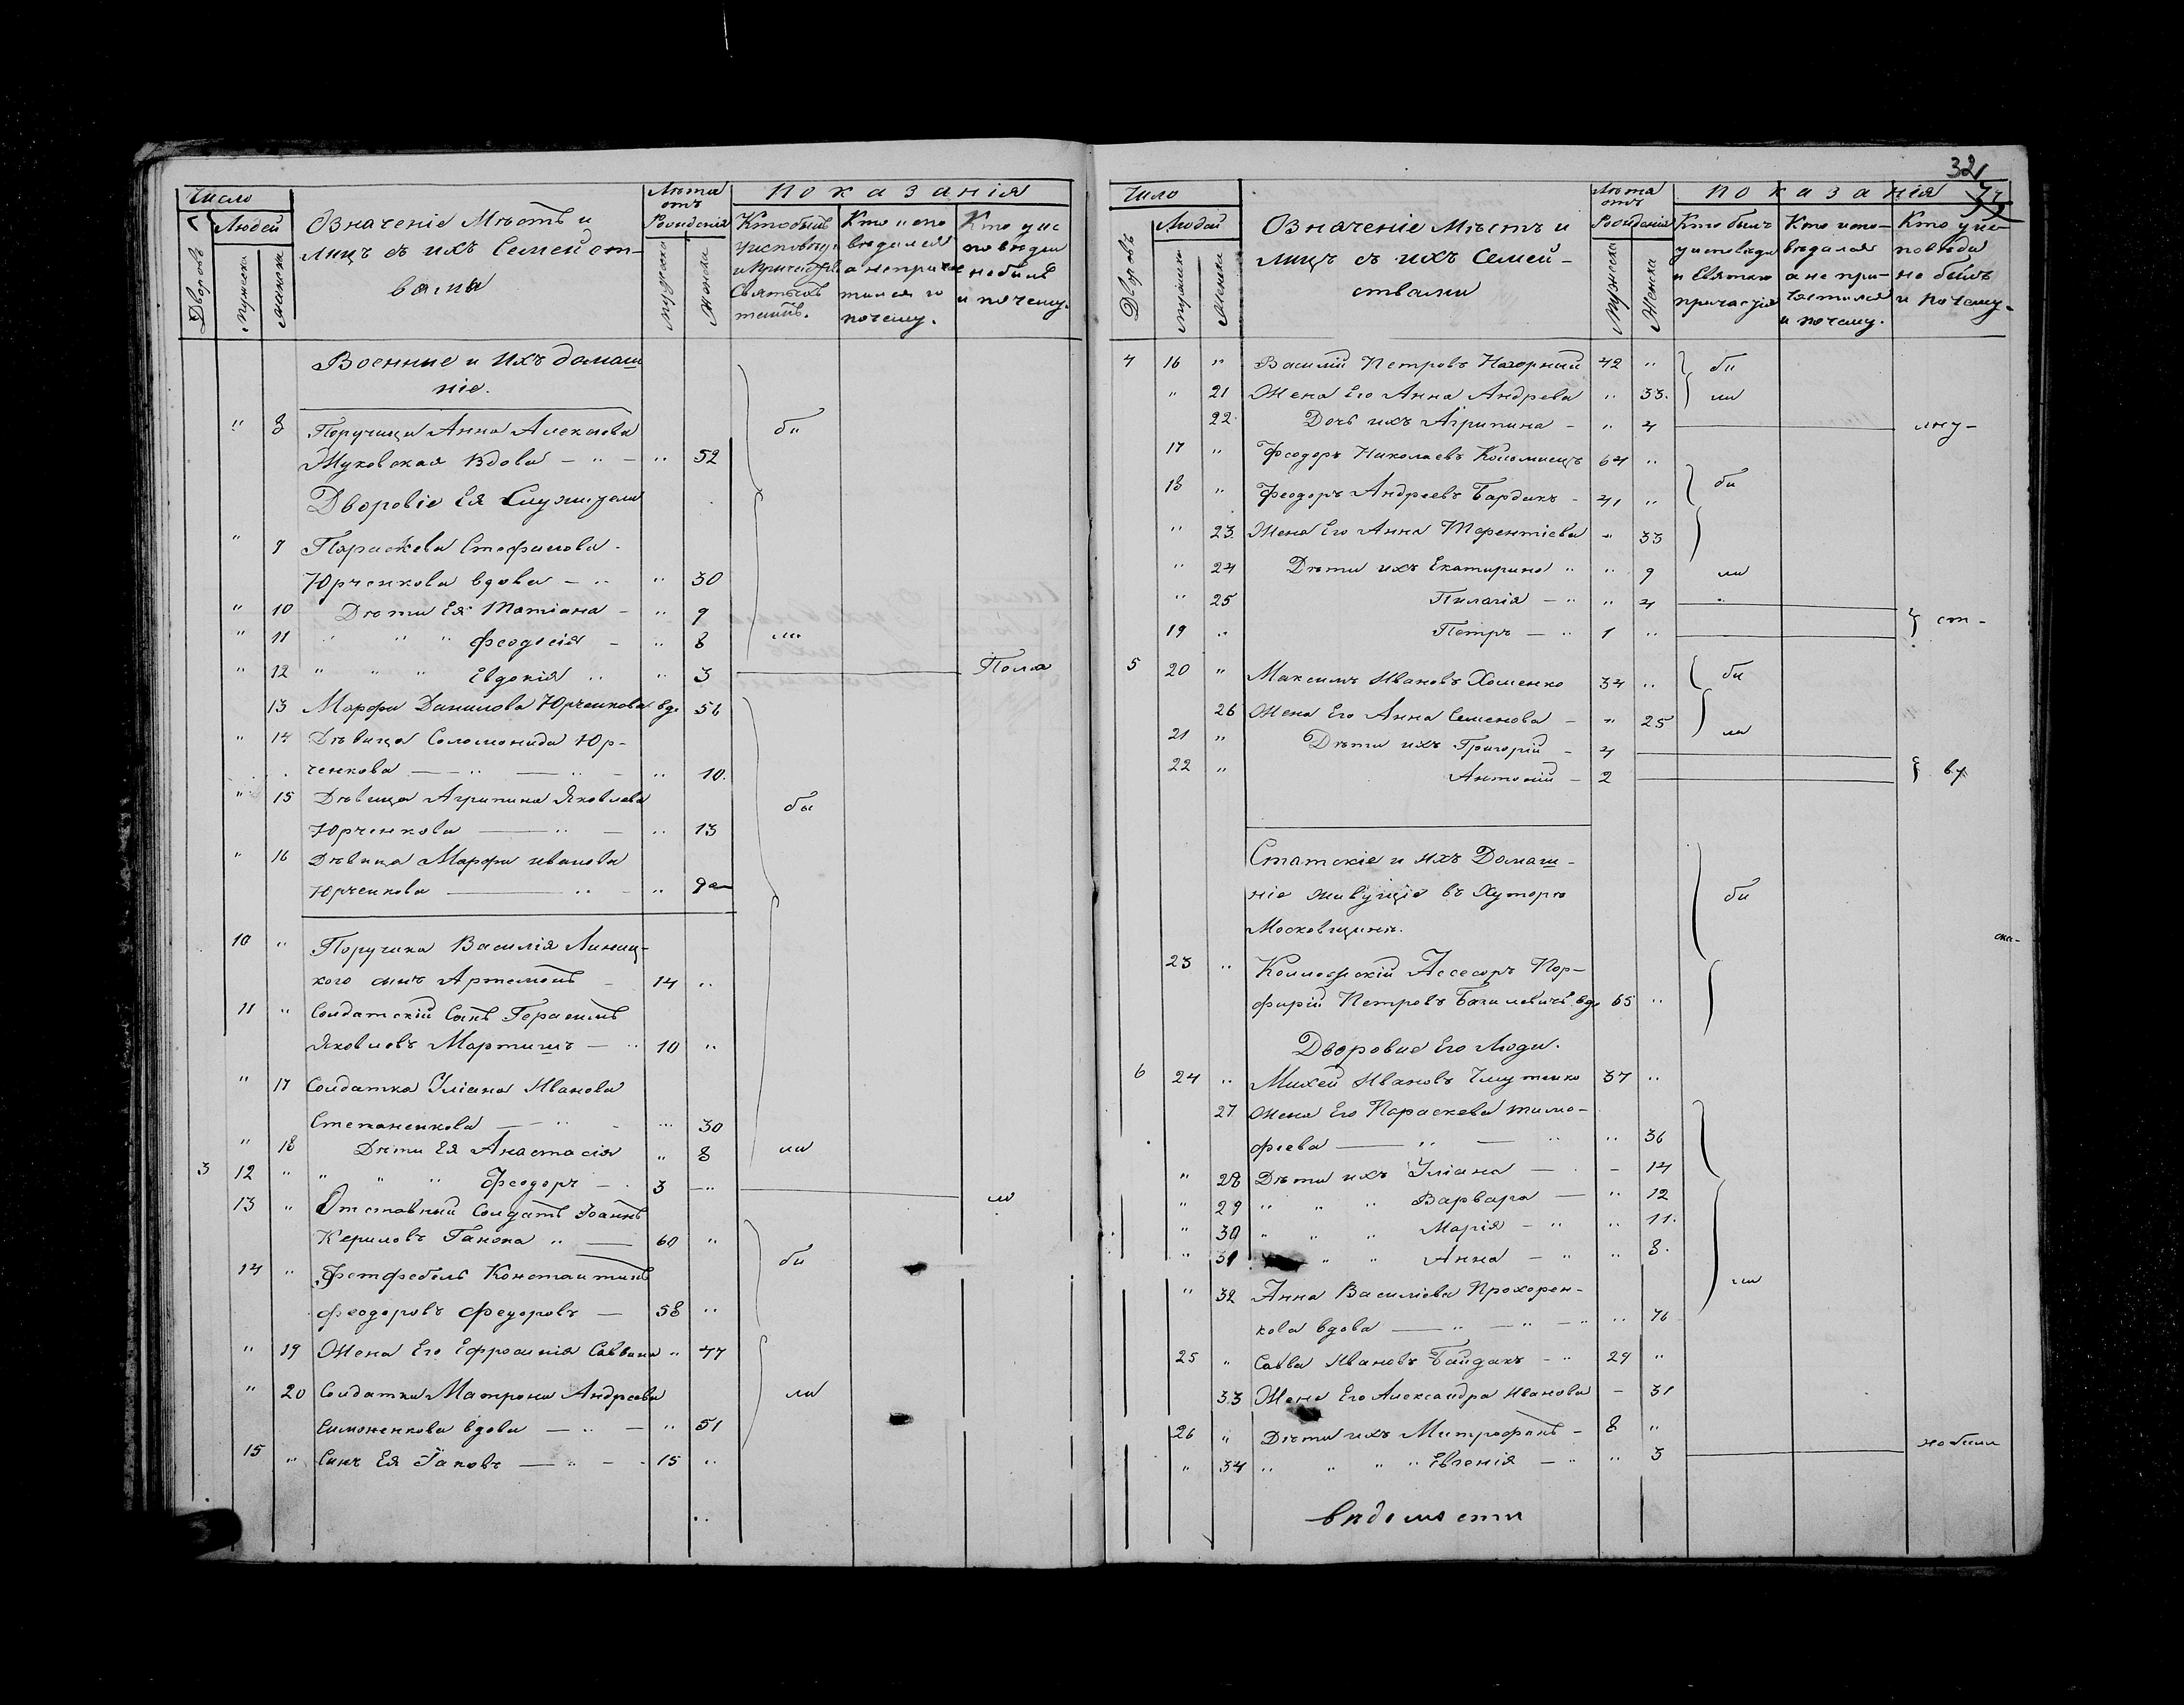 Число
Людей
Дворовъ
Мужеска
Женска
Означеніе Мѣстъ и
лицъ съ ихъ Семейст-
вами
Лѣта
отъ
Рожденія
Мужеска
Женска
Показанія
Кто былъ
уисповѣди
и причастія
Святыхъ
таинъ.
Кто испо
вѣдался
а непричас
тился и
почему.
Кто уис
повѣди
небылъ
и почему.
Военніе и Ихъ домаш
ніе.
" 8 Поручица Анна Алексѣева
Жуковская Вдова — " — " 52
би
Дворовіе Ея Служители
" 9 Параскева Стефанова
Юрченкова вдова — " " 30
" 10 Дѣти Ея Татіана — " 9
" 11 " " " Феодосія — " 8
ли
" 12 " " " Евдокія " " 3
13 Марфа Данилова Юрченкова вд. 56
" 14 Дѣвица Соломонида Юр-
ченкова — " — " — " 10.
" 15 Дѣвица Агрипина Яковлева
Юрченкова — " — " 13
бы
" 16 Дѣвица Марфа иванова
Юрченкова — " — " 9
10 " Поручика Василія Линиц-
кого синъ Артемонъ — 14 "
11 " Солдатскій Синъ Герасимъ
Яковлевъ Мартишъ — " 10 "
" 17 Солдатка Уліана Иванова
Степаненкова — " — " 30
" 18 Дѣти Ея Анастасія " 8
ли
3 12 " " " " Феодоръ — 3 — "
13 " Отставный Солдатъ Іоаннъ
Кериловъ Ганока " — 60 "
би
14 " Фетфебель Константинъ
Феодоровъ Федоровъ — 58 "
" 19 Жена Его Ефросинія Саввина " 47
" 20 Солдатка Матрона Андреева
Симоненкова вдова — " — " 51
ли
15 " Синъ Ея Іаковъ — " — 15 "
32
Число
Людей
Дворовъ
Мужеска
Женска
Означеніе Мѣстъ и
лицъ съ ихъ Семей-
ствами
Лѣта
отъ
Рожденія
Мужеска
Женска
Показанія
Кто былъ
уисповѣди
и Святаго
причастія
Кто испо-
вѣдался
а не при-
частился
и почему.
Кто уис-
повѣди
не былъ
и почему.
4 16 " Василій Петровъ Нагорний 42 "
би
" 21 Жена Его Анна Андреева " 33.
ли
22 Дочь ихъ Агрипина — " 4
17 " Феодоръ Николаевъ 64 "
18 " Феодоръ Андреевъ Бардакъ — 41 "
би
" 23. Жена Его Анна Терентіева " 33
" 24 Дѣти ихъ Екатирина " " 9
ли
" 25 Пилагія — " " 4
19 " Петръ — " 1 "
5 20 " Максимъ Ивановъ Хоменко 34 "
би
26 Жена Его Анна Семенова — " 25
ли
21 " Дѣти ихъ Григорій — 4
22 " Антоній — 2
Статскіе и ихъ Домаш-
ніе живущіе въ Хуторѣ
би
Московщинѣ.
23 " Коллежскій Ассесоръ Пор-
фирій Петровъ Базилевичъ вд. 65 "
Дворовие Его Люди.
6 24 " Михей Ивановъ 37 "
27 Жена Его Параскева тимо-
феева — " — " " 36
" 28 Дѣти ихъ Уліана — " — 14
" 29 " " " Варвара — " 12
" 30 " " " Марія — " " 11.
" 31 " " Анна — " " 8.
ли
" 32 Анна Василіева Прохорен-
кова вдова — " — " — " " 76
25 " Савва Ивановъ Байдакъ — " 29 "
33 Жена Его Александра Иванова — 31
26 " Дѣти ихъ Митрофанъ — 8 "
" 34 " " " " Евгенія — " " 3
небили
вѣдомости